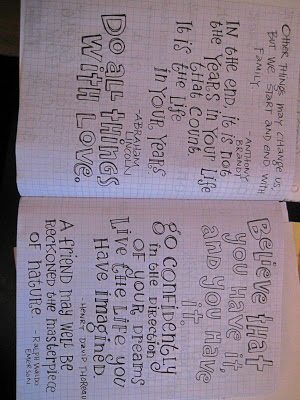 Other things may change us,
But we start and end with
family
-Anthony
Brandt
In the end, it is not
the years in your life
that count.
It is the life
in your years
-Abraham
Lincoln
Do all things
with love.
Believe that
you have it,
and you have
it.
go confidently
in the direction
of your dreams
Live the life you
have imagined.
-Henry David Thoreau
A friend may well be
reckoned the masterpiece
of nature. -Ralph Waldo
Emerson